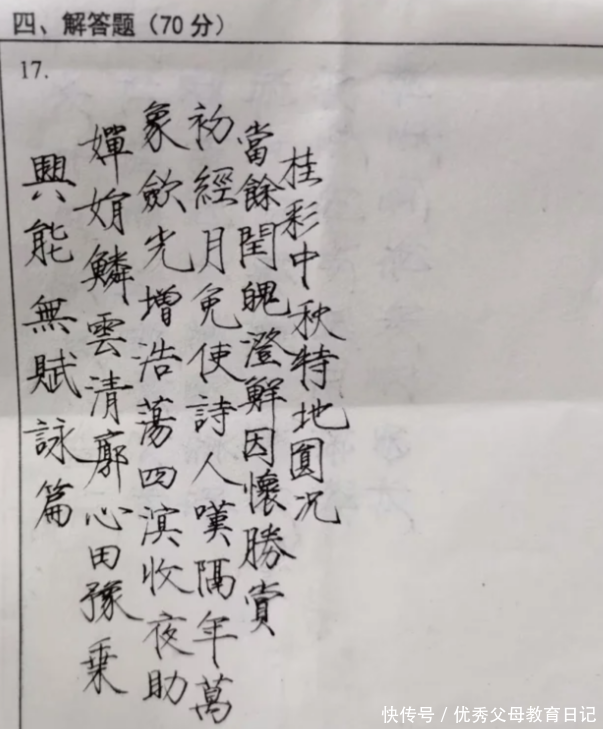 四、解答题（70分）
17.
桂彩中秋特地圓况
當餘閏魄澄鮮因懷勝賞
初經月免使詩人嘆隔年萬
象歛光增浩蕩四溟收夜助
嬋娟鱗雲清廓心田豫乘
興能無賦詠篇
快传号／优秀父母教育日记